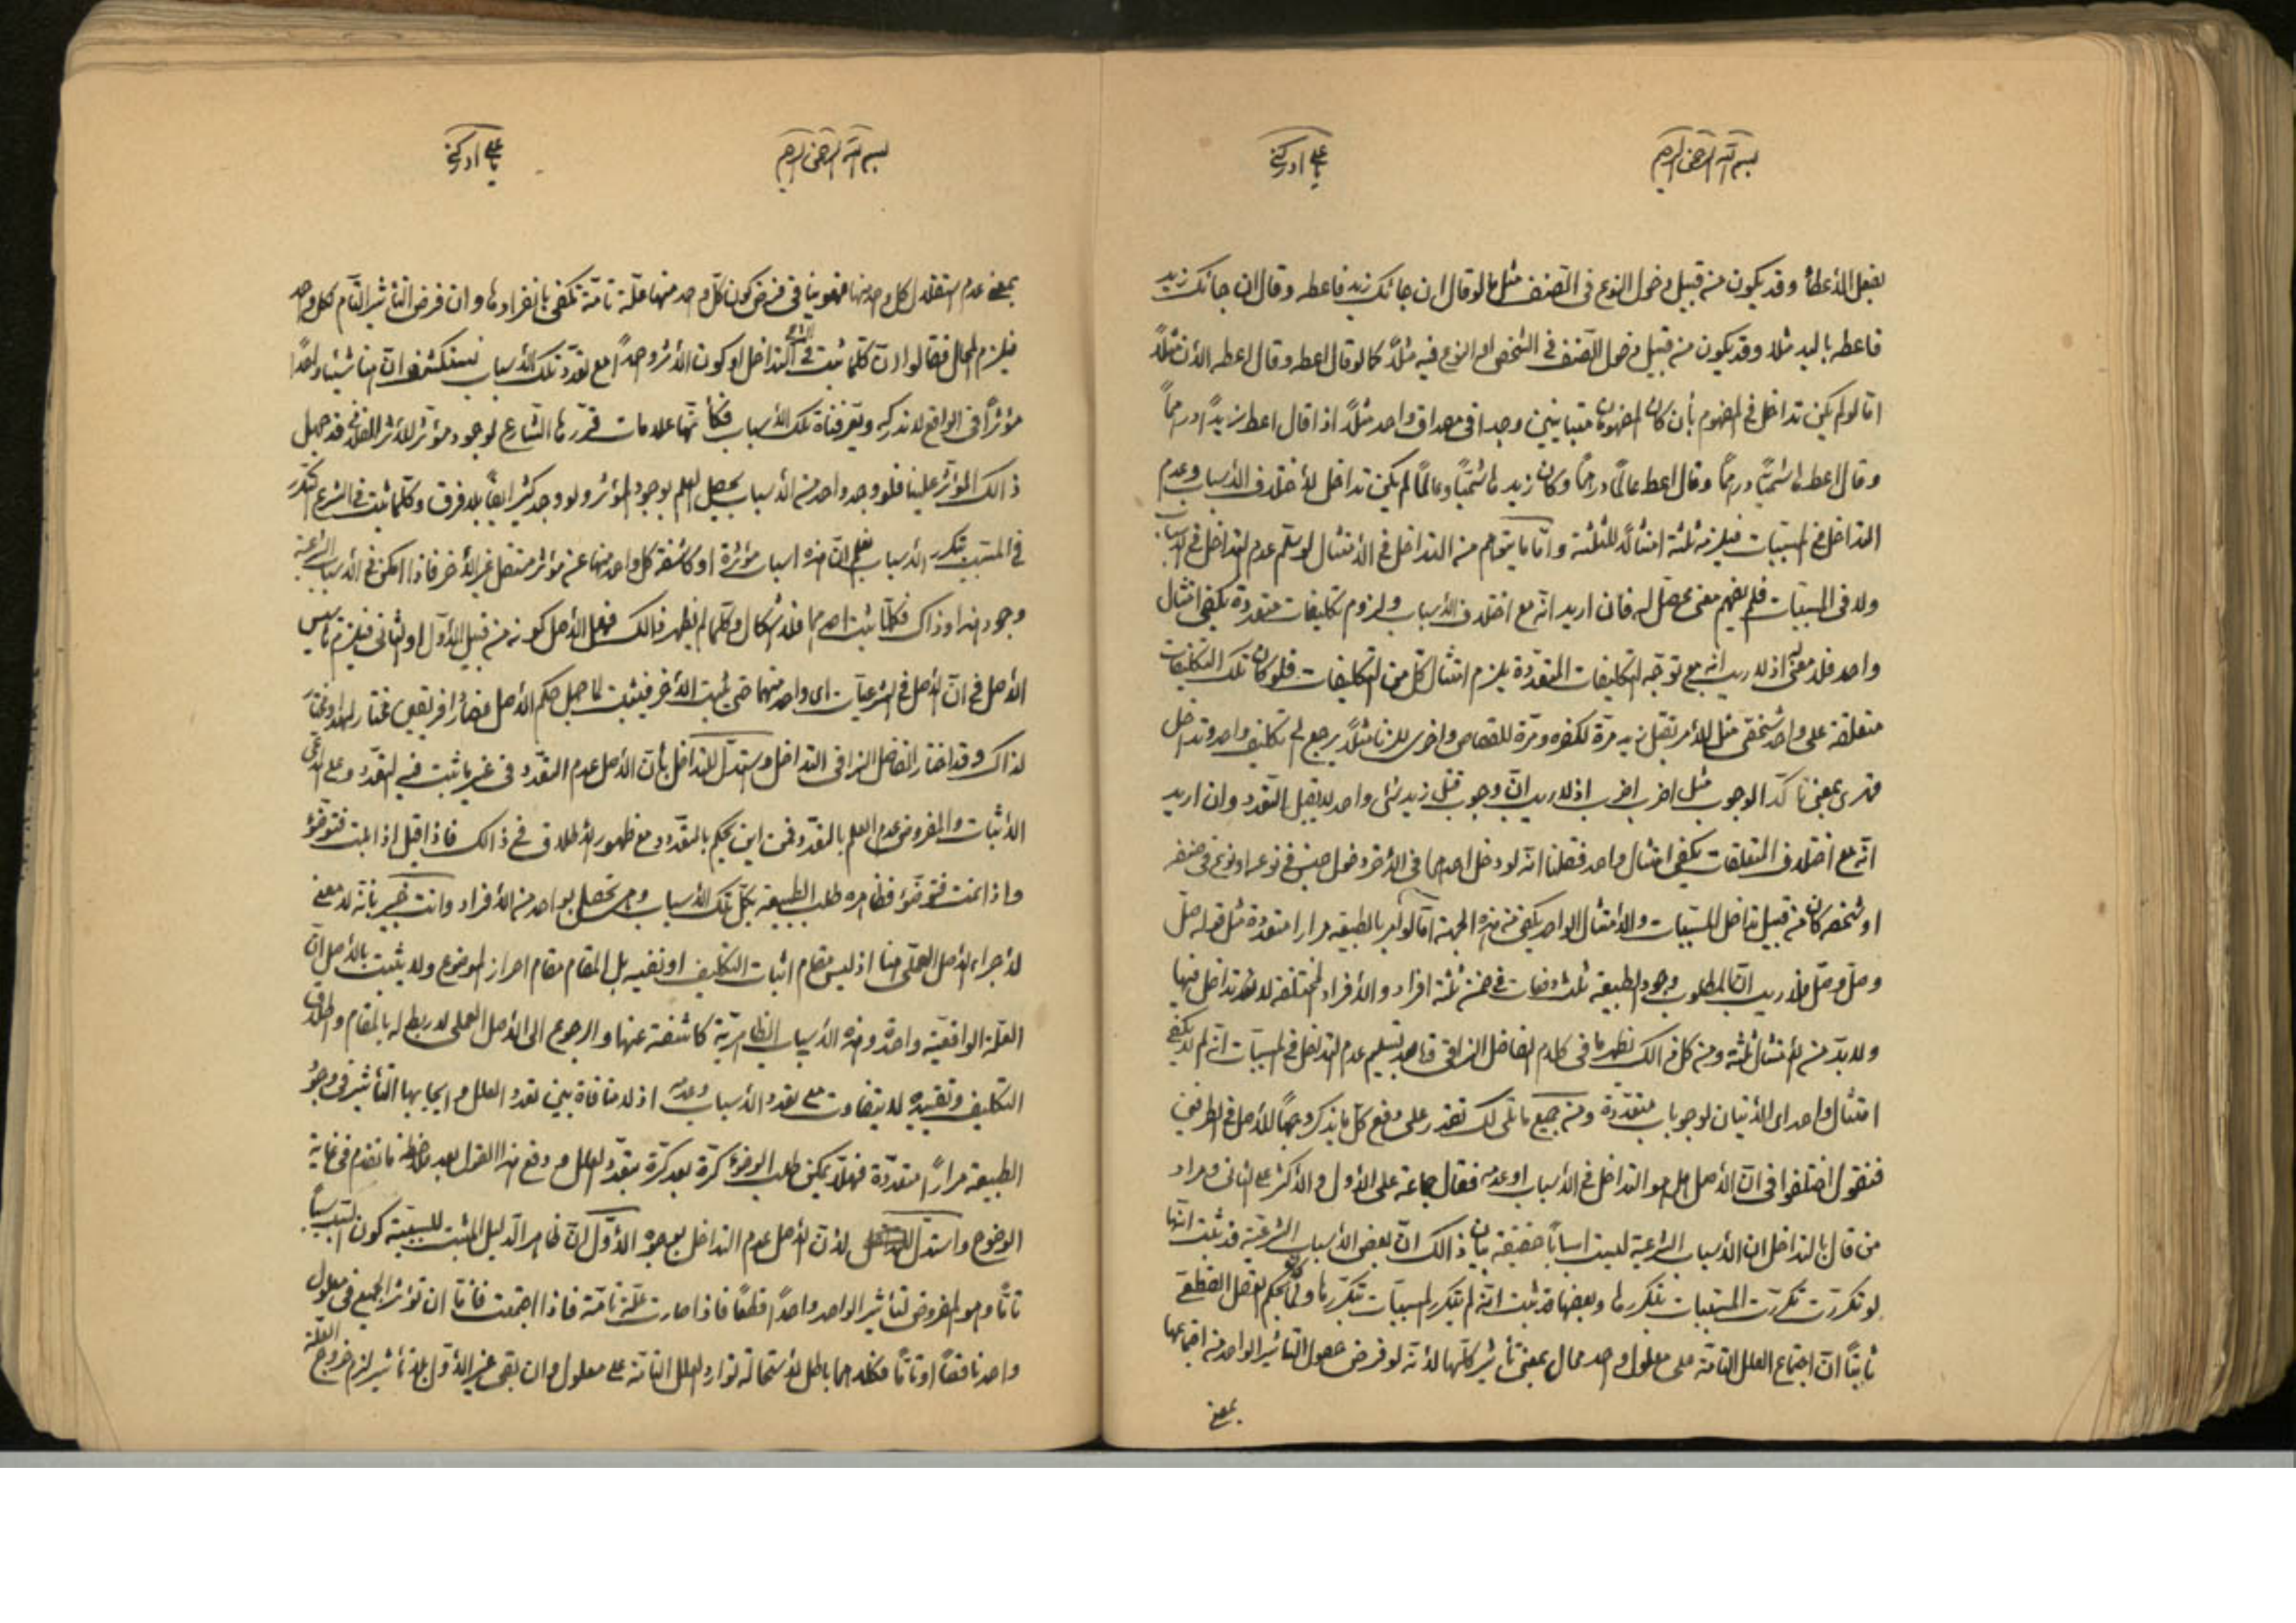 بسم الله الرحمن الرحيم
يا علي ادركني
بفعل الأعطاء وقد يكون من قبيل دخول النوع فى الصّنف مثل ما لو قال ان جائك زيد فاعطه وقال ان جائك زيد
فاعطه باليد مثلا وقد يكون من قبيل دخول الصّنف فى الشخص او النوع فيه مثلاً كما لو قال اعطه وقال اعطه الأن مثلاً
امّا لو لم يكن تداخل فى المفهوم بأن كان المفهومان متباينين وجدا فى مصداق واحد مثلاً اذا قال اعط زيداً درهماً
وقال اعط هاشميّاً درهماً وقال اعط عالماً درهماً وكان زيد هاشميّاً وعالماً لم يكن تداخل لأختلاف الأسباب وعدم
التداخل فى المسببات فيلزم ثلثة امتثالاً للثلثة وامّا ما يتوهم من التداخل فى الأمتثال لو سلّم عدم التداخل فى الاسباب
ولا فى المسببات فلم نفهم معنى محصّل له فان اريد انّه مع اختلاف الأسباب ولزوم تكليفات متعددة يكفى امتثال
واحد فلا معنى له اذ لا ريب انّه مع توجّه التكليفات المتعدّدة يلزم امتثال كل من التكليفات فلو كان تلك التكليفات
متعلقة على واحد شخصى مثل الأمر بقتل زيد مرّة لكفره ومرّة للقصاص واخرى للزنا مثلاً يرجع الى تكليف واحد وتداخل
قهرى بمعنى تأكّد الوجوب مثل اضرب اضرب اذ لا ريب انّ وجوب قتل زيد شئ واحد لا يقبل التعّدد وان اريد
انّه مع اختلاف المتعلقات يكفى امتثال واحد فقلنا انّه لو دخل احدهما فى الأخر دخول جنس فى نوعه او نوع فى صنفه
او شخصه كان من قبيل تداخل المسبّبات والأمتثال الواحد يكفى من هذه الجهة امّا لو امر بالطبيعة مرارا متعددة مثل قوله صلّ
وصلّ وصلّ فلا ريب انّ المطلوب وجود الطبيعة ثلث دفعات فى ضمن ثلثة افراد والأفراد المختلفة لا تداخل فيها
ولا بدّ من الأمتثال ثلثة ومن كل ذالك نظهر ما فى كلام الفاضل النراقى فانّه بعد تسليم عدم التداخل فى المسببات انّه لم لا يكفى
امتثال واحد اى الأتيان لوجوبات متعدّدة ومن جميع ما تلى لك تقدر على دفع كلّ ما يذكر وجهاً للأصل فى الطرفين
فنقول اختلفوا فى انّ الأصل هل هو التداخل فى الأسباب او عدمه فقال جماعة على الأول والأكثر على الثانى ومراد
من قال بالتداخل ان الأسباب الشرعية ليست اسباباً حقيقة بيان ذالك انّ بعض الأسباب الشرعيّة قد ثبت انّها
لو تكرّرت تكررت المسبّبات بتكررها وبعضها قد ثبت انّه لم يتكرر المسبّبات بتكرّرها ولمّا يحكم العقل القطعى
ثابتاً انّ اجتماع العلل التامّة على معلول واحد محال بمعنى تأثير كلّها لأنّه لو فرض حصول التأثير الواحد من اجتماعها
بمعنى
بسم الله الرحمن الرحيم
يا علي ادركني
بمعنى عدم استقلال كل واحد منها فهو ينافى فرض كون كلّ واحد منها علّة تامّة تكفى بانفرادها وان فرض التأثير التّام لكل واحد
فيلزم المحال فقالوا انّ كلّما ثبت فيه التداخل او كون الأثر واحداً مع تعدّد تلك الأسباب نستكشف انّ هنا شيئا واحداً
مؤثراً فى الواقع لا ندركه وتعرفناه تلك الأسباب فكأنّها علامات قرّرها الشارع لوجود مؤثر للأثر الفلانى قد جهل
ذالك المؤثر علينا فلو وجد واحد من الأسباب يحصل العلم بوجود المؤثر ولو وجد كثير ايضاً بلا فرق وكلّما ثبت فى الشرع تكرّر
فى المسبّب بتكرر الأسباب نعلم انّ هذه اسباب مؤثرة او كاشفة كل واحد منها عن مؤثر منفصل غير الأخر فاذا امكن فى الأسباب الشرعية
وجود هذا وذاك فكلّما ثبت احدهما فلا اشكال وكلّما لم نظهر ذالك فهل الأصل كونه من قبيل الأوّل او الثانى فيلزم تأسيس
الأصل فى انّ الأصل فى الشرعيّات اى واحد منهما حتى يثبت الأخر فيثبت لما جهل حكم الأصل فصاروا فريقين مختار لهذا ومختار
لذاك وقد اختار الفاضل النراقى التداخل واستدلّ للتداخل بأنّ الأصل عدم التعّدد فى غير ما ثبت فيه التعّدد وعلى المدّعى
الأثبات والمفروض عدم العلم بالتعّدد فمن اين يحكم بالتعّدد مع ظهور الأطلاق فى ذالك فاذا قيل اذا بلت فتوضّؤ
واذا نمت فتوضّؤ فظاهره طلب الطبيعة بكلّ تلك الأسباب وهى تحصل بواحد من الأفراد وانت خبير بانّه لا معنى
لأجراء الأصل العملى هنا اذ ليس مقام اثبات التكليف او نفيه بل المقام مقام احراز الموضوع ولا يثبت بالأصل انّ
العلّة الواقعيّة واحدة وهذه الأسباب الظاهريّة كاشفة عنها والرجوع الى الأصل العملى لا ربط له بالمقام واطلاق
التكليف وتقييده لا يتفاوت مع تعدد الأسباب وعدمه اذ لا منافاة بين تعدد العلل وايجابها التأثير فى وجود
الطبيعة مراراً متعدّدة فهلاّ يمكن طلب الوضوء كرّة بعد كرّة بتعدّد العلل ودفع هذا القول بعد ملاحظة ما تقدم فى غاية
الوضوح واستدلّ لأنّ الأصل عدم التداخل بوجوه الأوّل انّ ظاهر الدّليل المثبت للسببيّة كون السبب سبباً
تامّاً وهو المفروض لتأثير الواحد واحداً قطعاً فاذا صارت علّة تامّة فاذا اجتمعت فامّا ان تؤثر الجميع فى معلول
واحد ناقصاً او تامّاً فكلاهما باطل لأستحالة توارد العلل التامّة على معلول وان بقى غير الأوّل بلا تأثير لزم خروج العلّة